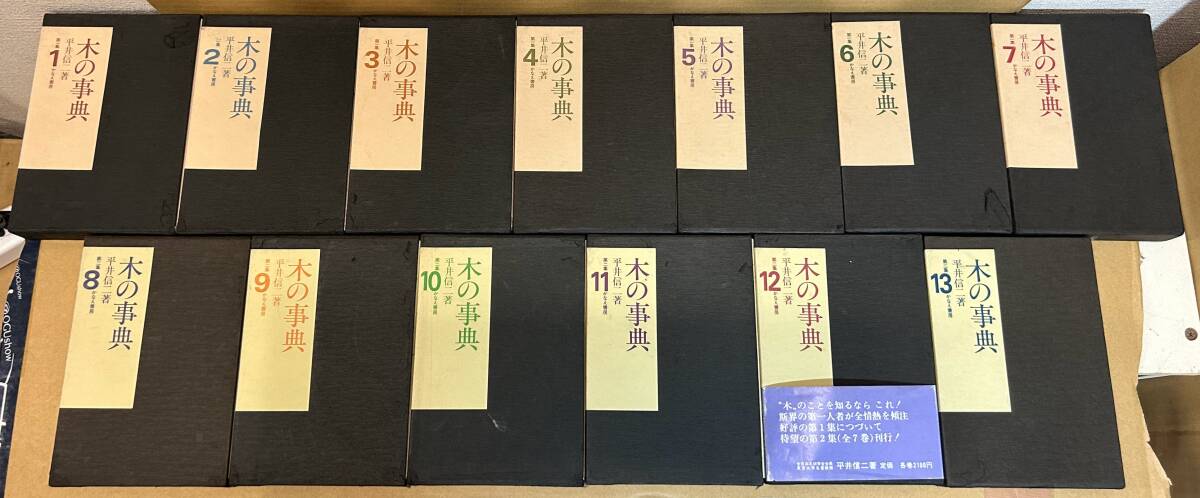 木の事典
平井信二著
第一集
1
かなえ書房
木の事典
平井信二著
2
かなえ書房
木の事典
平井信二著
第一集
3
かなえ書房
木の事典
平井信二著
第一集
4
かなえ書房
木の事典
平井信二著
第一集
5
かなえ書房
木の事典
平井信二著
第一集
6
かなえ書房
木の事典
平井信二著
第一集
7
かなえ書房
木の事典
平井信二著
第二集
8
かなえ書房
木の事典
平井信二著
第二集
9
かなえ書房
木の事典
平井信二著
第二集
10
かなえ書房
木の事典
平井信二著
第二集
11
かなえ書房
木の事典
平井信二著
第二集
12
かなえ書房
木の事典
平井信二著
第二集
13
かなえ書房
"木"のことを知るなら これ!
斯界の第一人者が全情熱を傾注
好評の第1集につづいて
待望の第2集(全7巻)刊行!
平井信二著 定価 各巻2100円